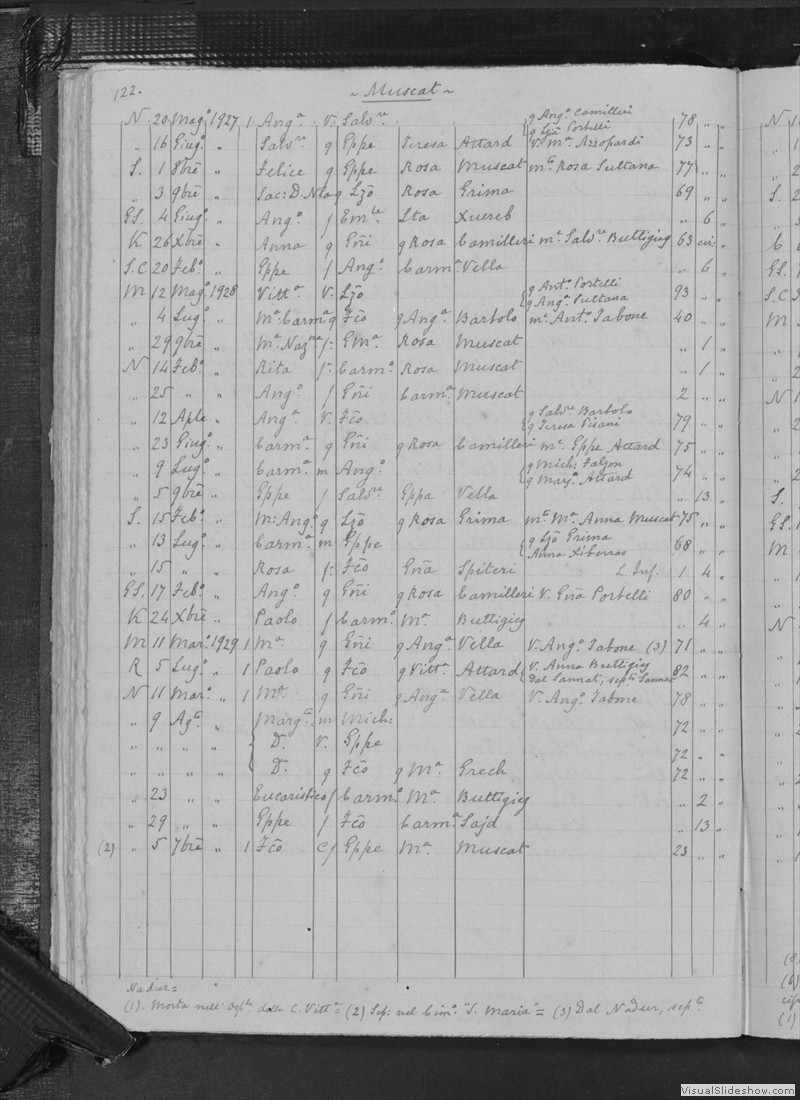 122. ~ Muscat ~
N 20 Magº 1927 1 Angª V. Salvre { q Angº Camilleri 78 " "
{ q Lja Portelli
" 16 Giugº " Salvre q Gppe Teresa Attard V. Mª Azzopardi 73 " "
S. 1 8bre " Felice q Gppe Rosa Muscat mª Rosa Sultana 77 " "
" 3 9bre " Sac: D. q Ljo Rosa Grima 69 " "
GS. 4 Giugº " Angº f Emle Lta Xuereb " 6 "
K 26 Xbre " Anna q Gñi q Rosa Camilleri mª Salvre Buttigieg 63 "
S.C 20 Febº " Gppe f Angº Carmª Vella " 6 "
M 12 Magº 1928 Vittª V. Ljo { q Antº Portelli 93 " "
{ q Angª Sultana
" 4 Lugº " Mª Carmª q Fco q Angª Bartolo mª Antº Tabone 40 " "
" 29 9bre " Mª f: Gmª Rosa Muscat " 1 "
N 14 Febº " Rita f: Carmº Rosa Muscat " 1 "
" 25 " " Angº f Gñi Carmª Muscat 2 " "
" 12 Aple " Angª V. Fco { q Salvre Bartolo 79 " "
{ q Teresa Pisani
" 23 Giugº " Carmª q Gñi q Rosa Camilleri mª Gppe Attard 75 " "
" 9 Lugº " Carmª m Angº { q Mich: Falzon 74 " "
{ q Margª Attard
" 5 9bre " Gppe f Salvre Gppa Vella " 13 "
S. 15 Febº " M: Angº q Ljo q Rosa Grima mª Mª Anna Muscat 75 " "
" 13 Lugº " Carmª m Gppe { q Ljo Grima 68 " "
Anna Xiberras
" 15 " " Rosa f: Fco Gña Spiteri L. Inf: 1 4 "
GS. 17 Febº " Angº q Gñi q Rosa Camilleri V. Gña Portelli 80 " "
K 24 Xbre " Paolo f Carmº Mª Buttigieg " 4 "
M 11 Marº 1929 1 Mª q Gñi q Angª Vella V. Angº Tabone (3) 71 " "
R 5 Lugº " 1 Paolo q Fco q Vittª Attard { V. Anna Buttigieg 82 " "
dal Sannat, septº Sannat
N 11 Marº " 1 Mª q Gñi q Angª Vella V. Angº Tabone 78 " "
" 9 Agtº " Margª m Mich: 72 " "
" " " " { Dª V. Gppe 72 " "
" " " " Dª q Fco q Mª Grech 72 " "
" 23 " " Eucaristico f Carmº Mª Buttigieg " 2 "
" 29 " " Gppe f Fco Carmª Sajd " 13 "
(2) " 5 7bre " 1 Fco C f Gppe Mª Muscat 23 " "
Nadur =
(1). Morta nell' Osple della C. Vittª = (2) Sep: nel Cimº "S. Maria" = (3) Dal Nadur, septª
VisualSlideshow.com